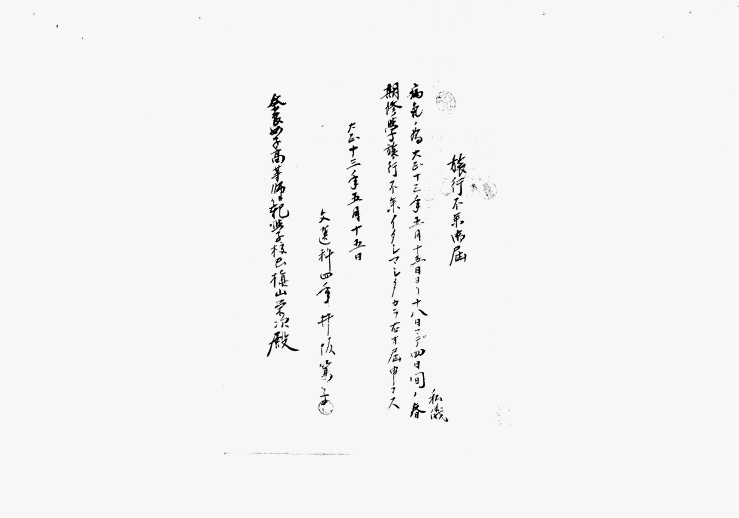 旅行不参御届
私儀
病気ノ為大正十三年五月十五日ヨリ十八日マデ四日間ノ春
期修学旅行不参イタシマシタカラ右オ届申マス
大正十三年五月十五日
文選科四年 井阪篤子
奈良女子高等師範学校長槇山栄次殿